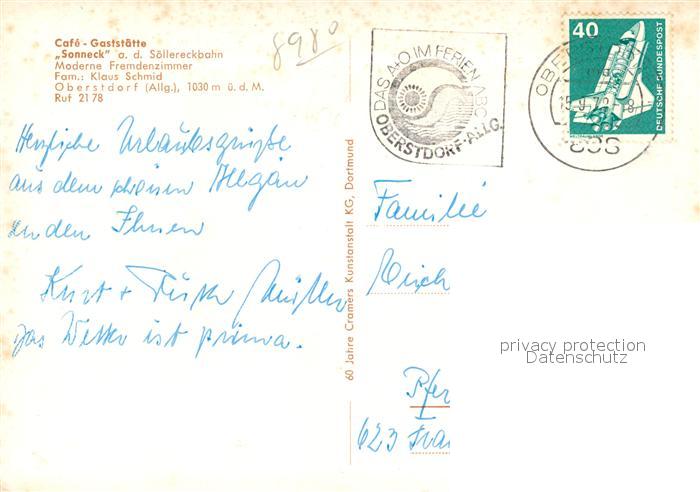 Café - Gaststätte
„Sonneck" a. d. Söllereckbahn
Moderne Fremdenzimmer
Fam.: Klaus Schmid
Oberstdorf (Allg.), 1030 m ü. d. M.
Ruf 21 78
8980
DAS A+O IM FERIEN ABC
OBERSTDORF·ALLG.
40
DEUTSCHE BUNDESPOST
Herzliche Urlaubsgrüße
aus dem schönen Allgäu
senden Ihnen
Kurt +
das Wetter ist prima.
60 Jahre Cramers Kunstanstalt KG, Dortmund
Familie
623
privacy protection
Datenschutz